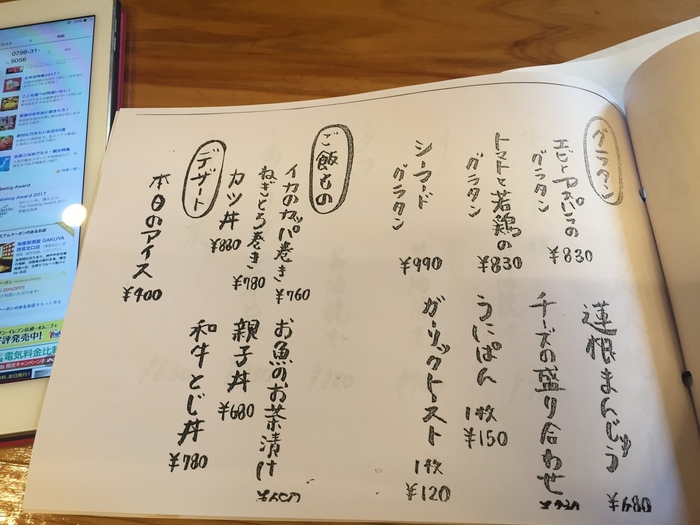 グラタン
エビとアスパラの
グラタン
¥830
トマトと若鶏の
グラタン
¥830
シーフード
グラタン
¥990
蓮根まんじゅう
¥680
チーズの盛り合わせ
うにぱん
1枚
¥150
ガーリックトースト
1枚
¥120
ご飯もの
イカのカッパ巻き
¥760
ねぎとろ巻き
¥780
カツ丼
¥880
お魚のお茶漬け
親子丼
¥680
和牛とじ丼
¥780
デザート
本日のアイス
¥400
0798-31-
5056